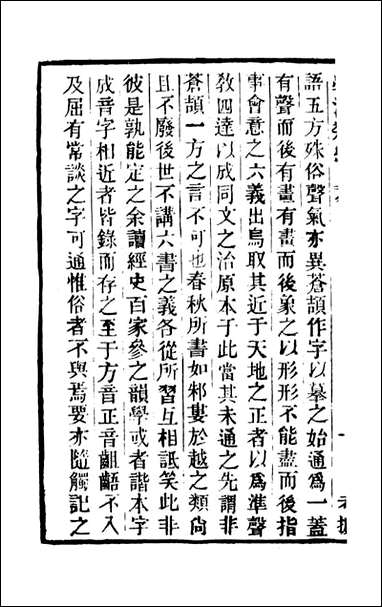 語五方殊俗聲氣亦異蒼頡作字以摹之始通爲一蓋
有聲而後有畫有畫而後象之以形形不能盡而後指
事會意之六義出焉取其近于天地之正者以爲準聲
敎四達以成同文之治原本于此當其未通之先謂非
蒼頡一方之言不可也春秋所書如邾婁於越之類尙
且不廢後世不講六書之義各從所習互相詆笑此非
彼是孰能定之余讀經史百家參之韻學或者諧本字
成音字相近者皆錄而存之至于方音正音齟齬不入
及屈宥常談之字可通惟俗者不與焉要亦隨觸記之